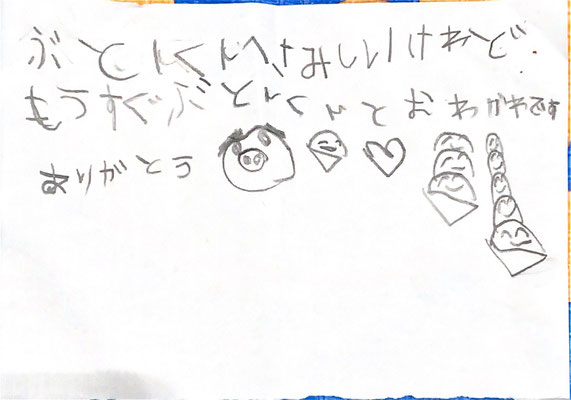 ぶとんくんへさみしいけれど
もうすぐぶとんくんとおわかれです
ありがとう